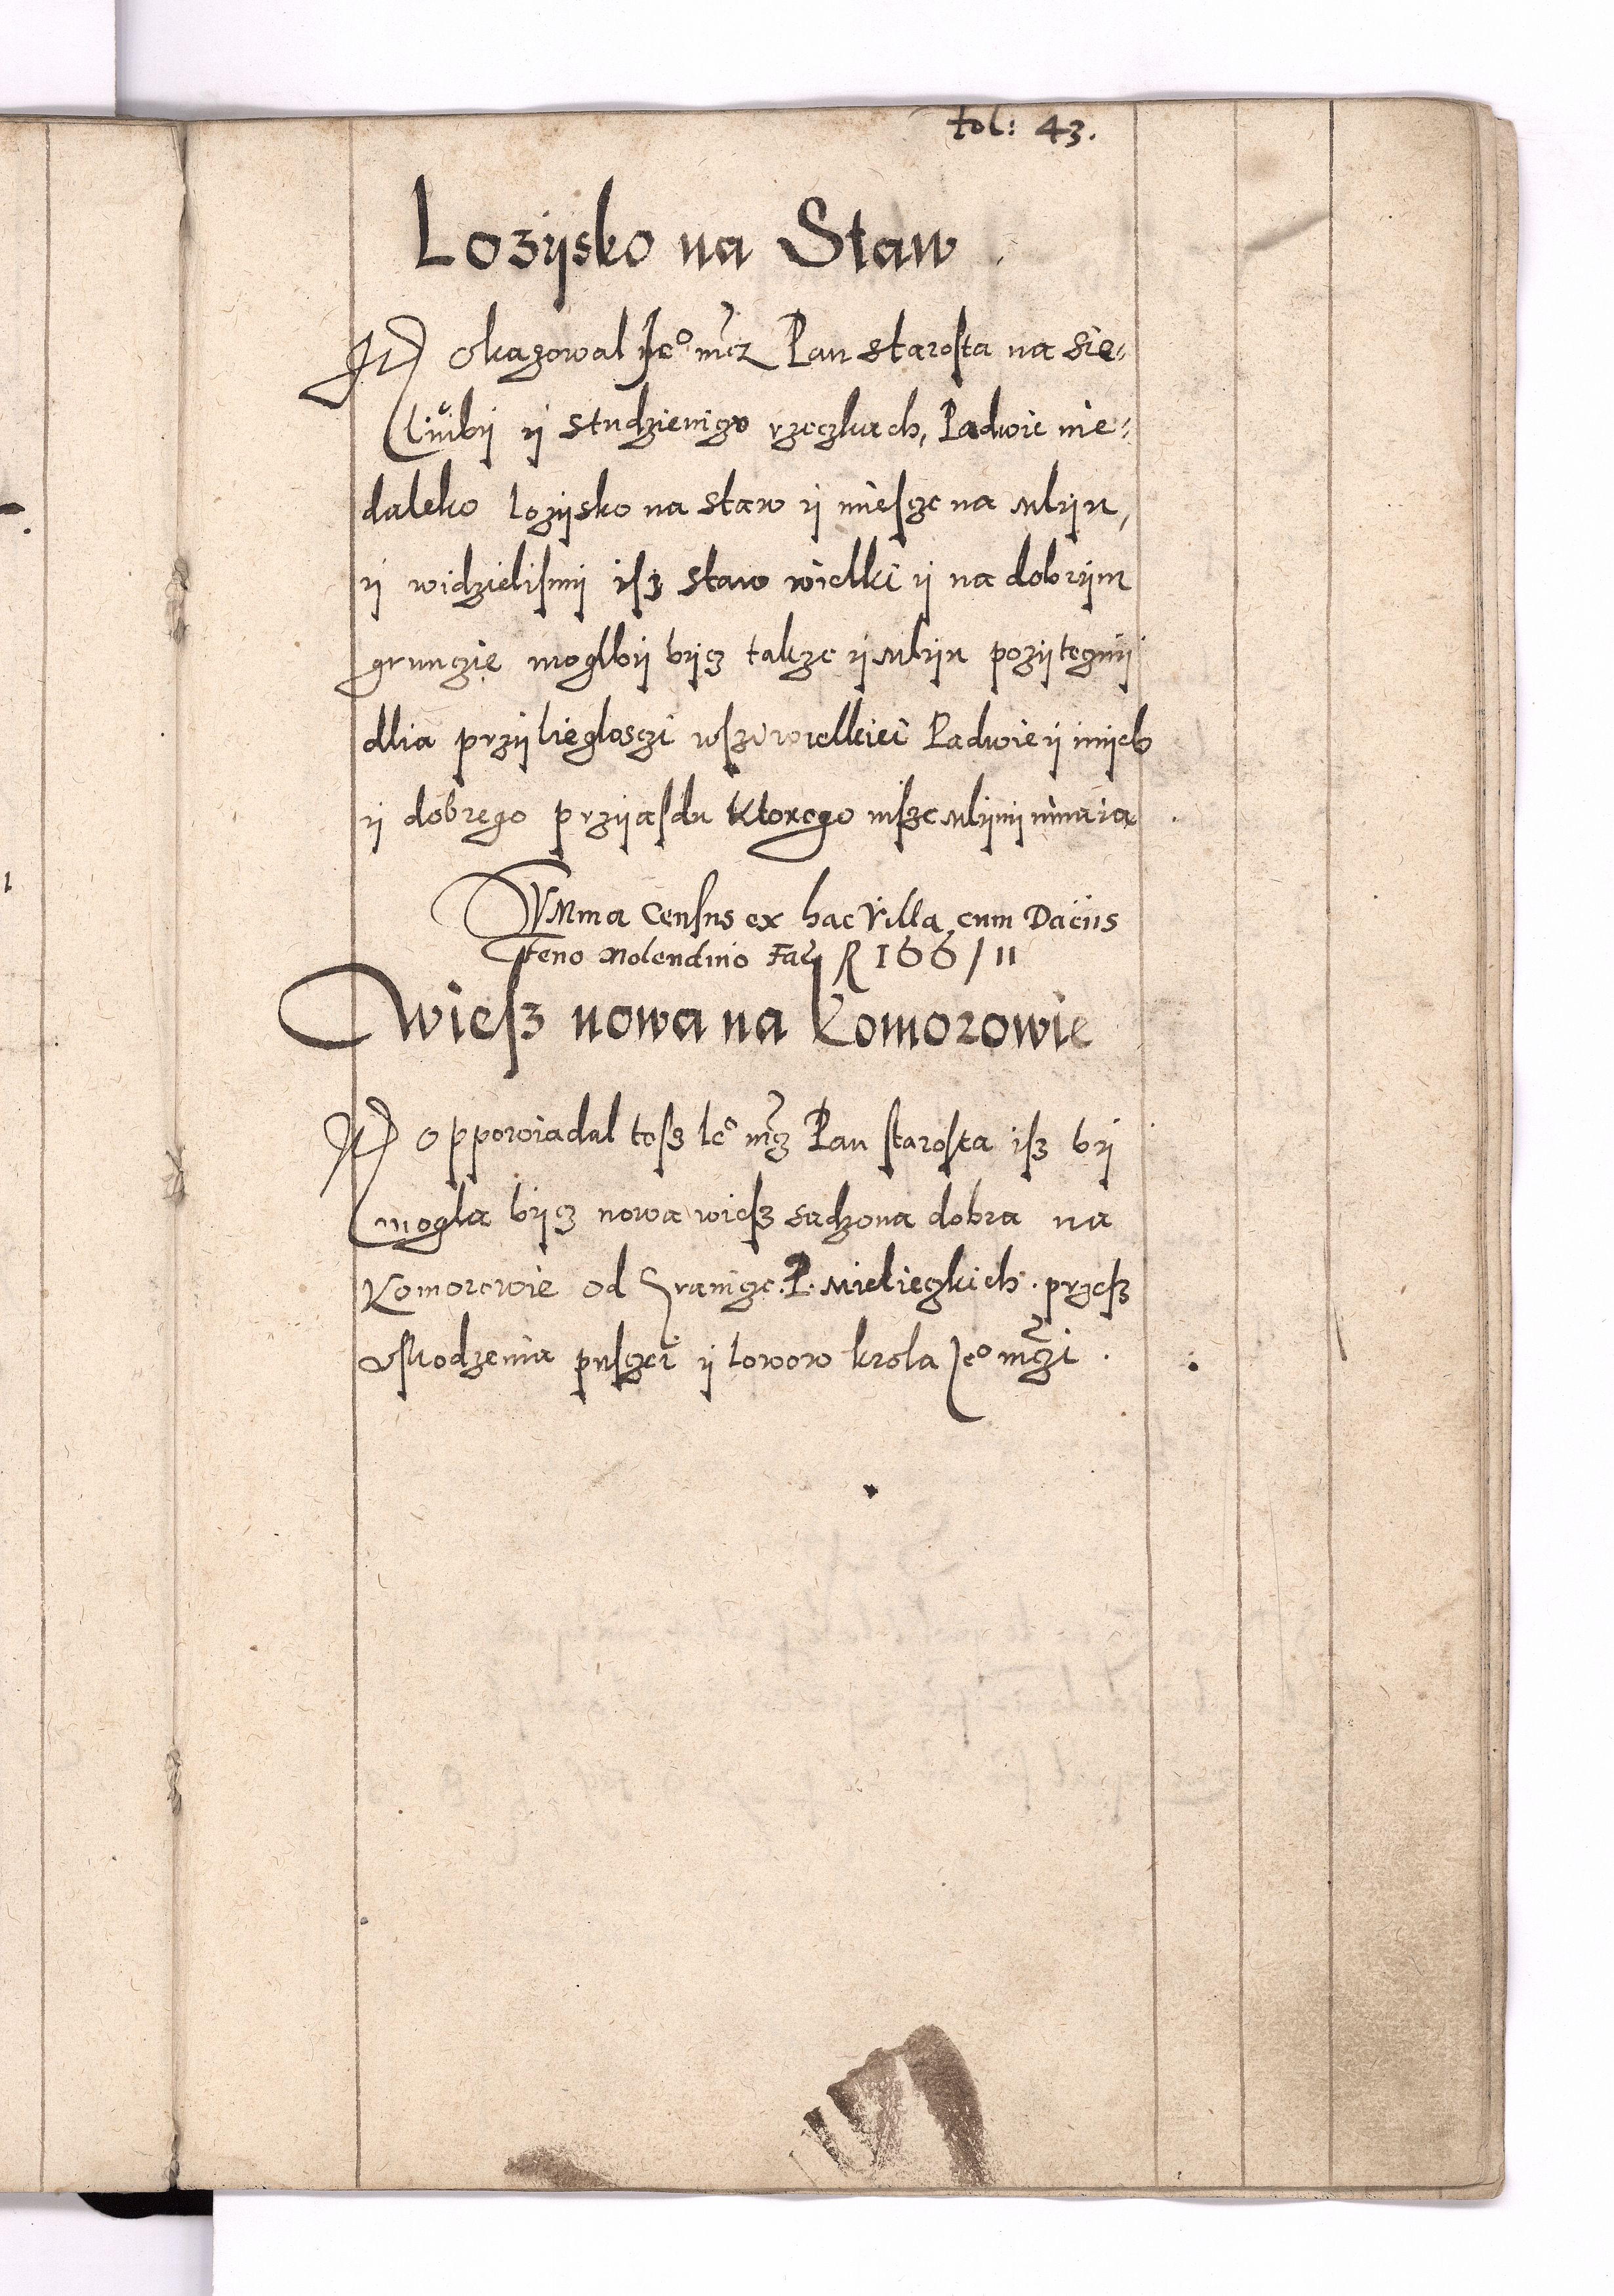 fol: 43.
Lozÿsko na Staw
It okazowal Jeº mcz Pan starosta na sie-
ÿ studzienigo rzeczkach, Padwie nie-
daleko lozÿsko na staw ÿ miesze na Mlÿn,
ÿ widzielismÿ isz staw wielki ÿ na dobrÿm
grunczie moglbÿ bÿcz takze ÿ Mlÿn pozÿtegnÿ
dlia przÿliegloszi wszÿ wielkiei Padwie ÿ innÿch
ÿ dobrego przÿasdu ktorego insze Mlÿnÿ nimaia
SVMma Census ex hac Villa cum Daciis
feno Molendino Fac R 166/11
Wiesz nowa na Komorowie
It oppowiadal tosz Jeº mcz Pan starosta isz bÿ
mogla bÿcz nowa wiesz sadzona dobra na
Komorowie od Granicze. P. Mieliegkich. przesz
uskodzenia pusczei ÿ lowow krola Jeº mczi.